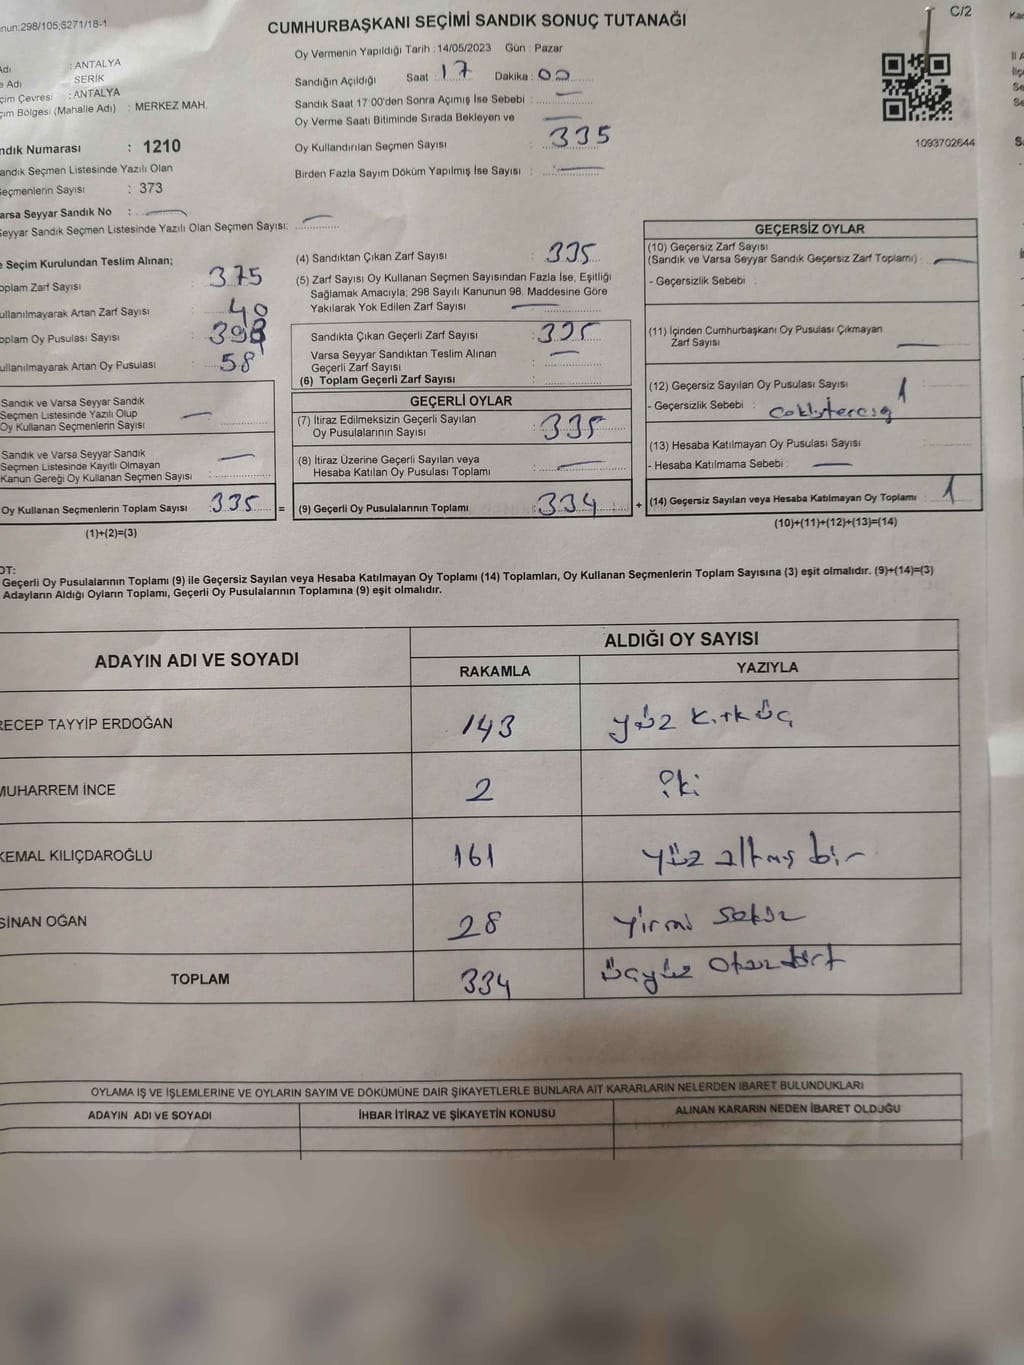 nun:298/105;S271/18-1
CUMHURBAŞKANI SEÇİMİ SANDIK SONUÇ TUTANAĞI
C/2
Adı : ANTALYA
e Adı : SERİK
çim Çevresi : ANTALYA
çim Bölgesi (Mahalle Adı) : MERKEZ MAH.
ndık Numarası : 1210
andık Seçmen Listesinde Yazılı Olan
eçmenlerin Sayısı : 373
arsa Seyyar Sandık No :
Seyyar Sandık Seçmen Listesinde Yazılı Olan Seçmen Sayısı:
Oy Vermenin Yapıldığı Tarih : 14/05/2023 Gün : Pazar
Sandığın Açıldığı Saat : 17 Dakika : 00
Sandık Saat 17:00'den Sonra Açımış İse Sebebi :
Oy Verme Saati Bitiminde Sırada Bekleyen ve
Oy Kullandırılan Seçmen Sayısı : 335
Birden Fazla Sayım Döküm Yapılmış İse Sayısı :
1093702644
e Seçim Kurulundan Teslim Alınan;
oplam Zarf Sayısı : 375
ullanılmayarak Artan Zarf Sayısı : 40
oplam Oy Pusulası Sayısı :
ullanılmayarak Artan Oy Pusulası : 58
Sandık ve Varsa Seyyar Sandık
Seçmen Listesinde Yazılı Olup
Oy Kullanan Seçmenlerin Sayısı
Sandık ve Varsa Seyyar Sandık
Seçmen Listesinde Kayıtlı Olmayan
Kanun Gereği Oy Kullanan Seçmen Sayısı
Oy Kullanan Seçmenlerin Toplam Sayısı : 335 =
(1)+(2)=(3)
(4) Sandıktan Çıkan Zarf Sayısı : 335
(5) Zarf Sayısı Oy Kullanan Seçmen Sayısından Fazla İse, Eşitliği
Sağlamak Amacıyla; 298 Sayılı Kanunun 98. Maddesine Göre
Yakılarak Yok Edilen Zarf Sayısı :
Sandıkta Çıkan Geçerli Zarf Sayısı : 335
Varsa Seyyar Sandıktan Teslim Alınan
Geçerli Zarf Sayısı :
(6) Toplam Geçerli Zarf Sayısı :
GEÇERLİ OYLAR
(7) İtiraz Edilmeksizin Geçerli Sayılan
Oy Pusulalarının Sayısı : 335
(8) İtiraz Üzerine Geçerli Sayılan veya
Hesaba Katılan Oy Pusulası Toplamı :
(9) Geçerli Oy Pusulalarının Toplamı : 334 +
GEÇERSİZ OYLAR
(10) Geçersiz Zarf Sayısı
(Sandık ve Varsa Seyyar Sandık Geçersiz Zarf Toplamı) :
- Geçersizlik Sebebi :
(11) İçinden Cumhurbaşkanı Oy Pusulası Çıkmayan
Zarf Sayısı :
(12) Geçersiz Sayılan Oy Pusulası Sayısı : 1
- Geçersizlik Sebebi :
(13) Hesaba Katılmayan Oy Pusulası Sayısı :
- Hesaba Katılmama Sebebi :
(14) Geçersiz Sayılan veya Hesaba Katılmayan Oy Toplamı : 1
(10)+(11)+(12)+(13)=(14)
OT:
Geçerli Oy Pusulalarının Toplamı (9) ile Geçersiz Sayılan veya Hesaba Katılmayan Oy Toplamı (14) Toplamları, Oy Kullanan Seçmenlerin Toplam Sayısına (3) eşit olmalıdır. (9)+(14)=(3)
Adayların Aldığı Oyların Toplamı, Geçerli Oy Pusulalarının Toplamına (9) eşit olmalıdır.
ADAYIN ADI VE SOYADI
ALDIĞI OY SAYISI
RAKAMLA YAZIYLA
RECEP TAYYİP ERDOĞAN 143 yüz kırk üç
MUHARREM İNCE 2 iki
KEMAL KILIÇDAROĞLU 161 yüz altmış bir
SİNAN OĞAN 28 yirmi sekiz
TOPLAM 334 üçyüz otuz dört
OYLAMA İŞ VE İŞLEMLERİNE VE OYLARIN SAYIM VE DÖKÜMÜNE DAİR ŞİKAYETLERLE BUNLARA AİT KARARLARIN NELERDEN İBARET BULUNDUKLARI
ADAYIN ADI VE SOYADI İHBAR İTİRAZ VE ŞİKAYETİN KONUSU ALINAN KARARIN NEDEN İBARET OLDUĞU